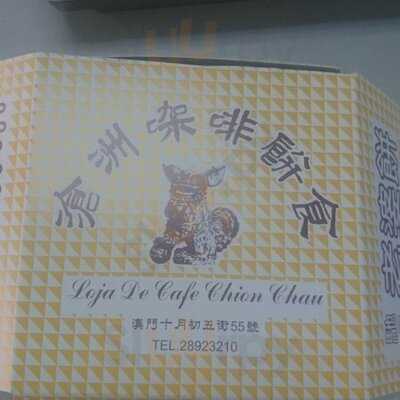 滄洲咖啡餅食
Loja De Cafe Chion Chau
澳門十月初五街55號
TEL.28923210